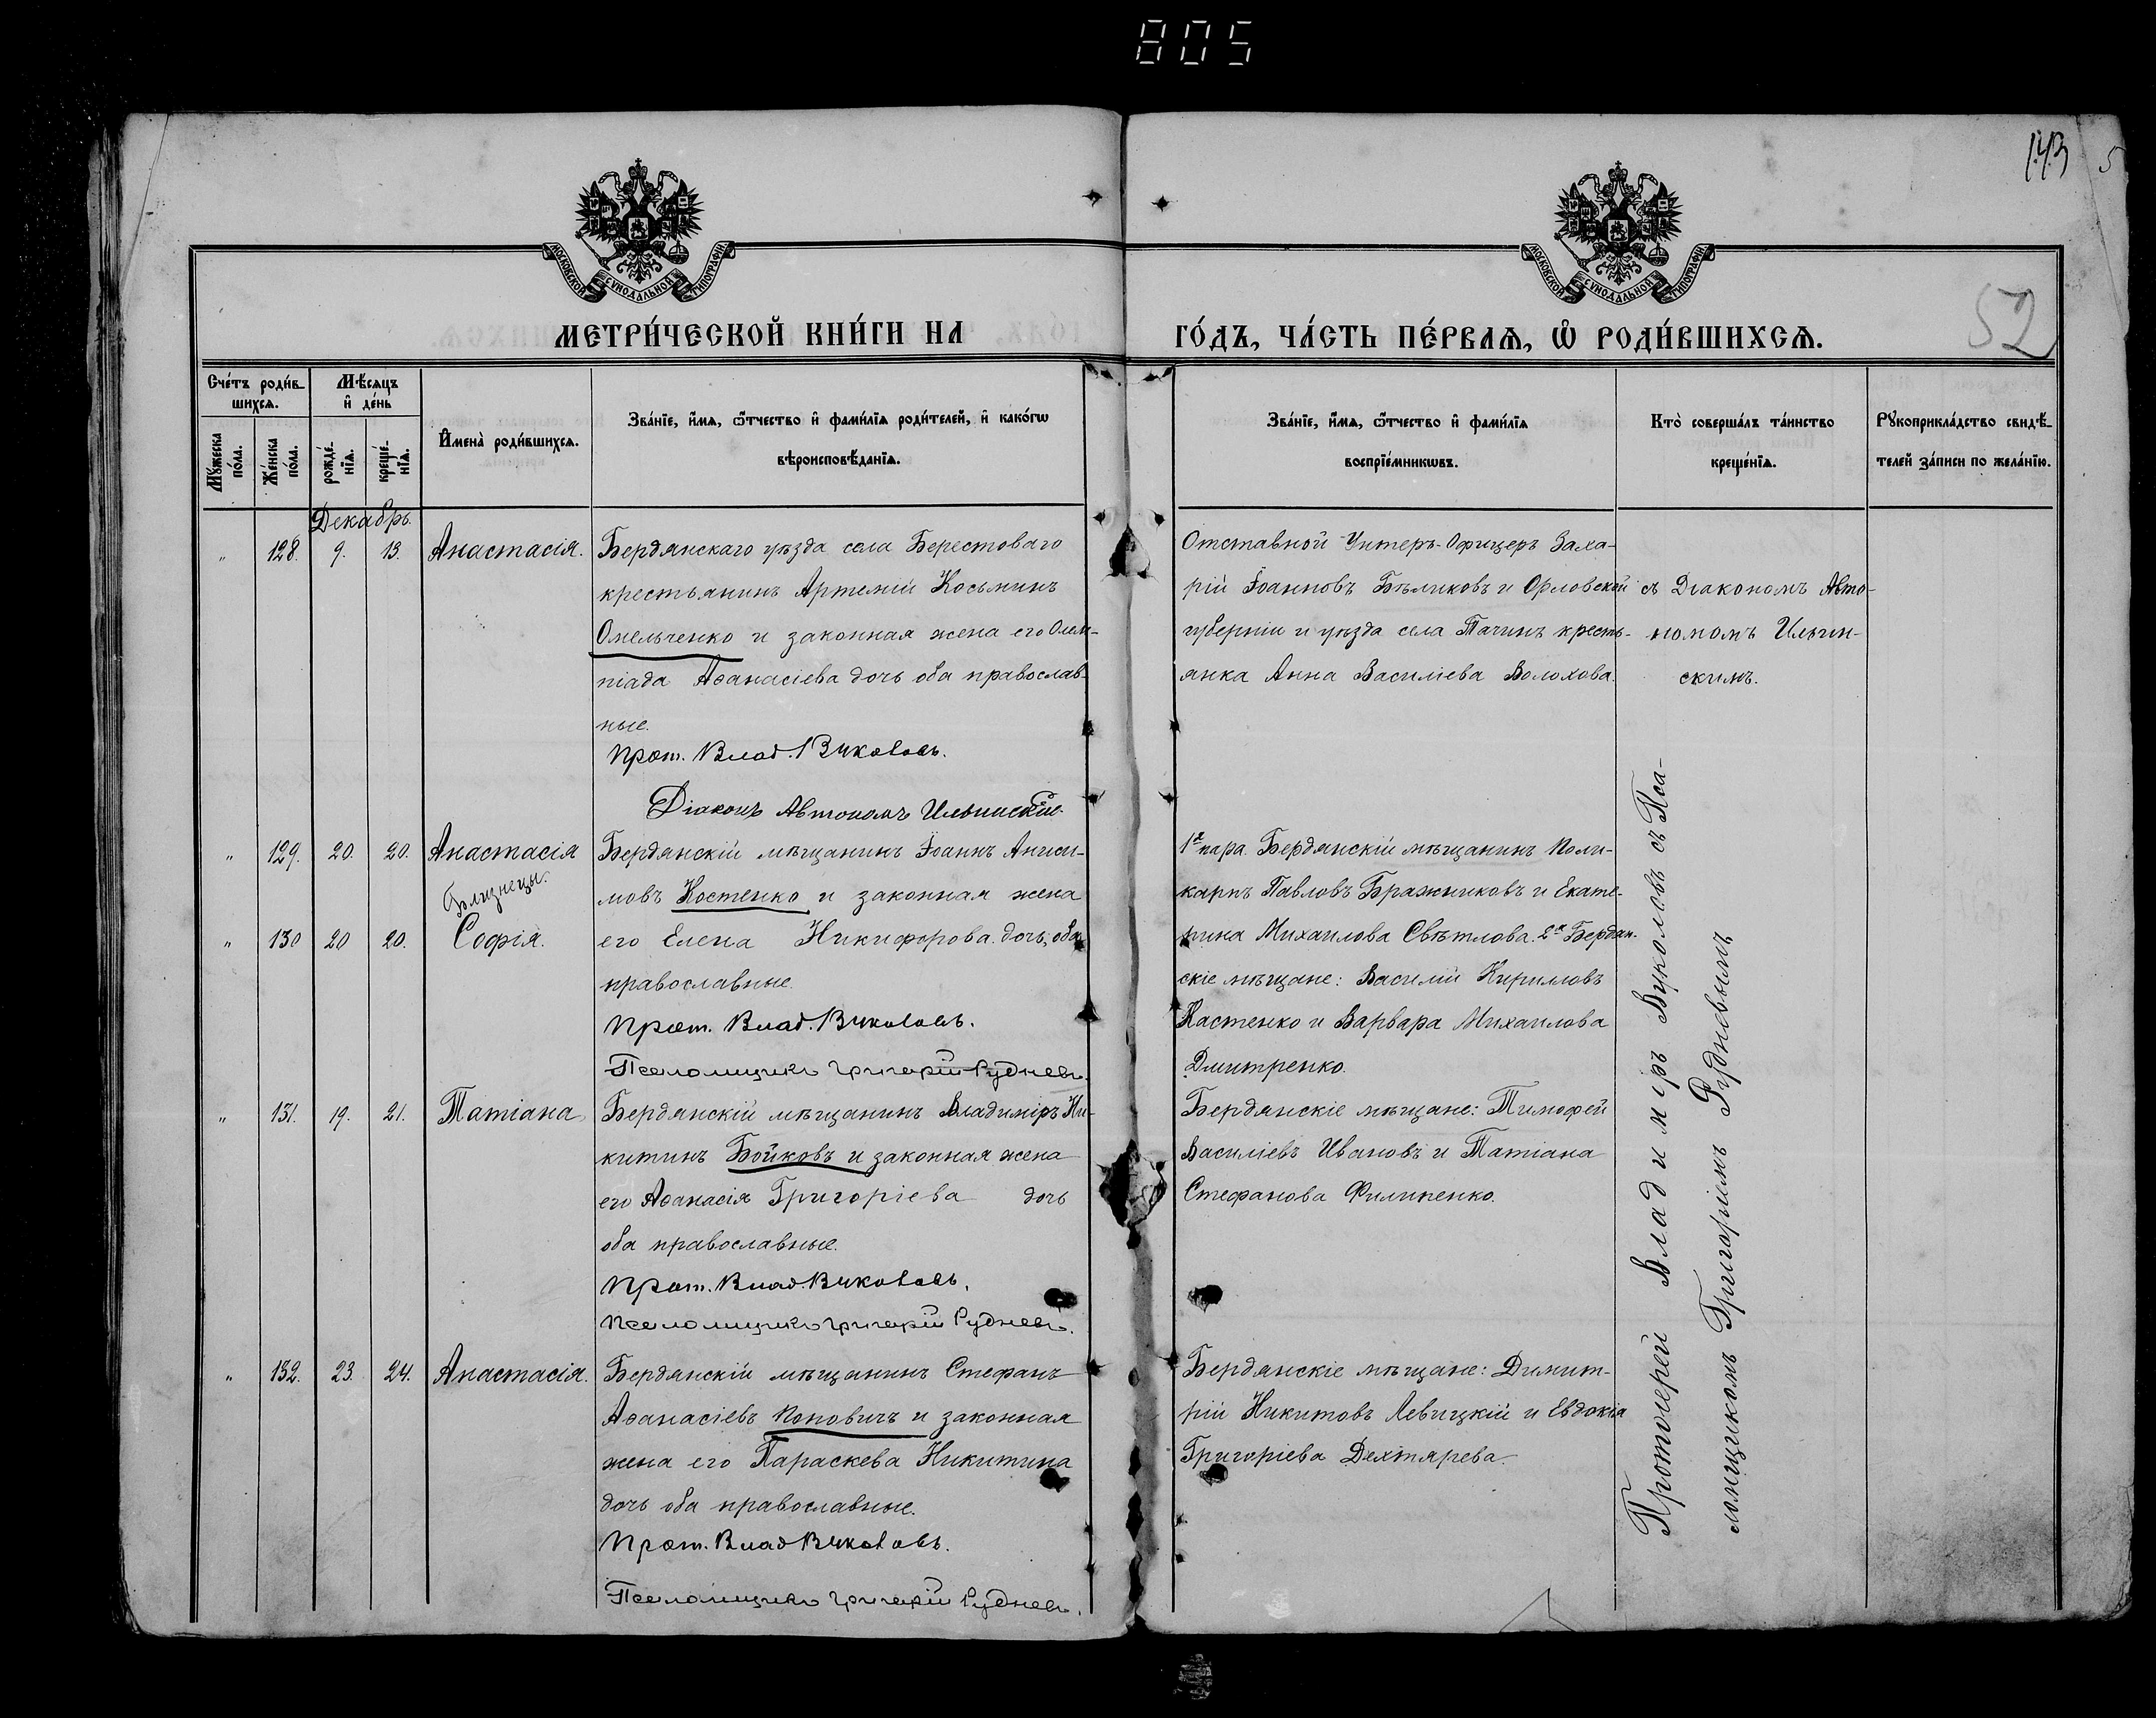 805
143
5
МОСКОВСКОЙ СѴНОДАЛЬНОЙ ТИПОГРАФІИ
МОСКОВСКОЙ СѴНОДАЛЬНОЙ ТИПОГРАФІИ
52
МЕТРИ́ЧЕСКОЙ КНИ́ГИ НА
ГО́ДЪ, ЧА́СТЬ ПЕ́РВАѦ, Ѡ҆ РОДИ́ВШИХСѦ.
Сче́тъ роди́в-
шихсѧ.
Мꙋ́жеска
по́ла.
Же́нска
по́ла.
Мѣ́сѧцъ
и҆ де́нь
рожде́-
нїѧ.
креще́-
нїѧ.
И҆мена̀ роди́вшихсѧ.
Зва́нїе, и҆́мѧ, ѻ҆́тчество и҆ фами́лїѧ роди́телей, и҆ како́гѡ
вѣроисповѣ́данїѧ.
Зва́нїе, и҆́мѧ, ѻ҆́тчество и҆ фами́лїѧ
воспрїе́мникѡвъ.
Кто̀ соверша́лъ та́инство
креще́нїѧ.
Рꙋкоприкла́дство свидѣ́-
телей за́писи по жела́нїю.
Декабрь.
" 128. 9. 13. Анастасія.
Бердянскаго уѣзда села Берестоваго
крестьянинъ Артемій Косьминъ
Омельченко и законная жена его Олим-
піада Аѳанасіева дочь оба православ-
ные.
Прот. Влад. Вуколовъ.
Діаконъ Автономъ Ильинскій.
Отставной Унтеръ-Офицеръ Заха-
рій Іоанновъ Бѣликовъ и Орловской
губерніи и уѣзда села Пачинъ кресть-
янка Анна Василіева Волохова.
съ Діакономъ Авто-
номомъ Ильин-
скимъ.
" 129. 20. 20. Анастасія
Близнецы.
" 130 20 20. Софія.
Бердянскій мѣщанинъ Іоаннъ Аниси-
мовъ Костенко и законная жена
его Елена Никифорова дочь, оба
православные.
Прот. Влад. Вуколовъ.
Псаломщикъ Григорій Рудневъ.
1я пара Бердянскій мѣщанинъ Поли-
карпъ Павловъ Бражниковъ и Екате-
рина Михаилова Свѣтлова. 2я Бердян-
скіе мѣщане: Василій Кирилловъ
Костенко и Варвара Михаилова
Дмитренко.
" 131. 19. 21. Татіана
Бердянскій мѣщанинъ Владиміръ Ни-
китинъ Бойковъ и законная жена
его Аѳанасія Григоріева дочь
оба православные.
Прот. Влад. Вуколовъ.
Псаломщикъ Григорій Рудневъ.
Бердянскіе мѣщане: Тимофей
Василіевъ Ивановъ и Татіана
Стефанова Филипенко.
" 132. 23. 24. Анастасія.
Бердянскій мѣщанинъ Стефанъ
Аѳанасіевъ Поповичъ и законная
жена его Параскева Никитина
дочь оба православные.
Прот. Влад. Вуколовъ.
Псаломщикъ Григорій Рудневъ.
Бердянскіе мѣщане: Димит-
рій Никитовъ Левицкій и Евдокія
Григоріева Дехтярева.
Протоіерей Владиміръ Вуколовъ съ Пса-
ломщикомъ Григоріемъ Рудневымъ